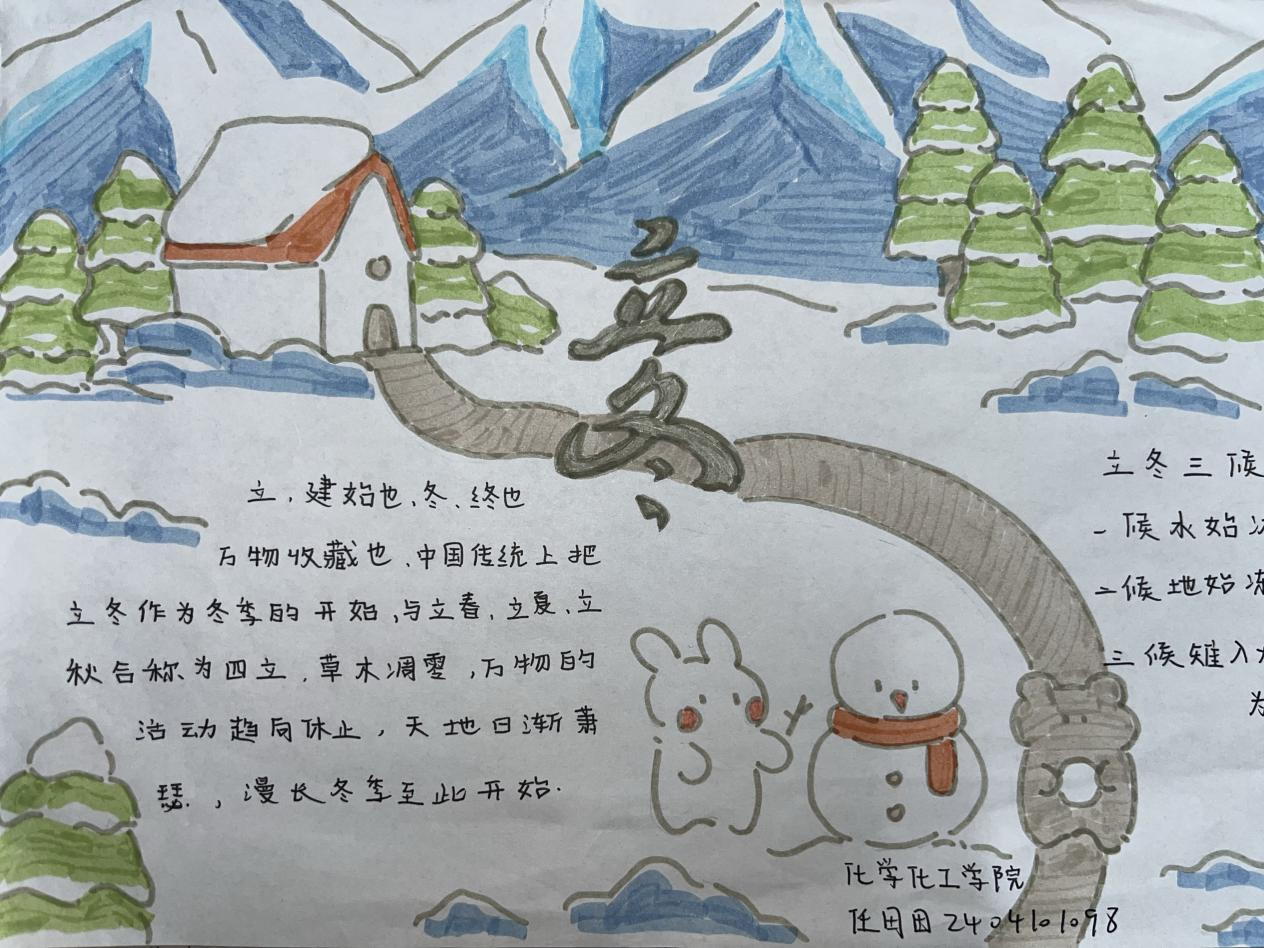 立冬
立，建始也，冬、终也
万物收藏也，中国传统上把
立冬作为冬季的开始，与立春，立夏，立
秋合称为四立，草木凋零，万物的
活动趋向休止，天地日渐萧
瑟，漫长冬季至此开始.
立冬三候
一候水始冰
二候地始冻
三候雉入大
为
化学化工学院
任田田2404101098